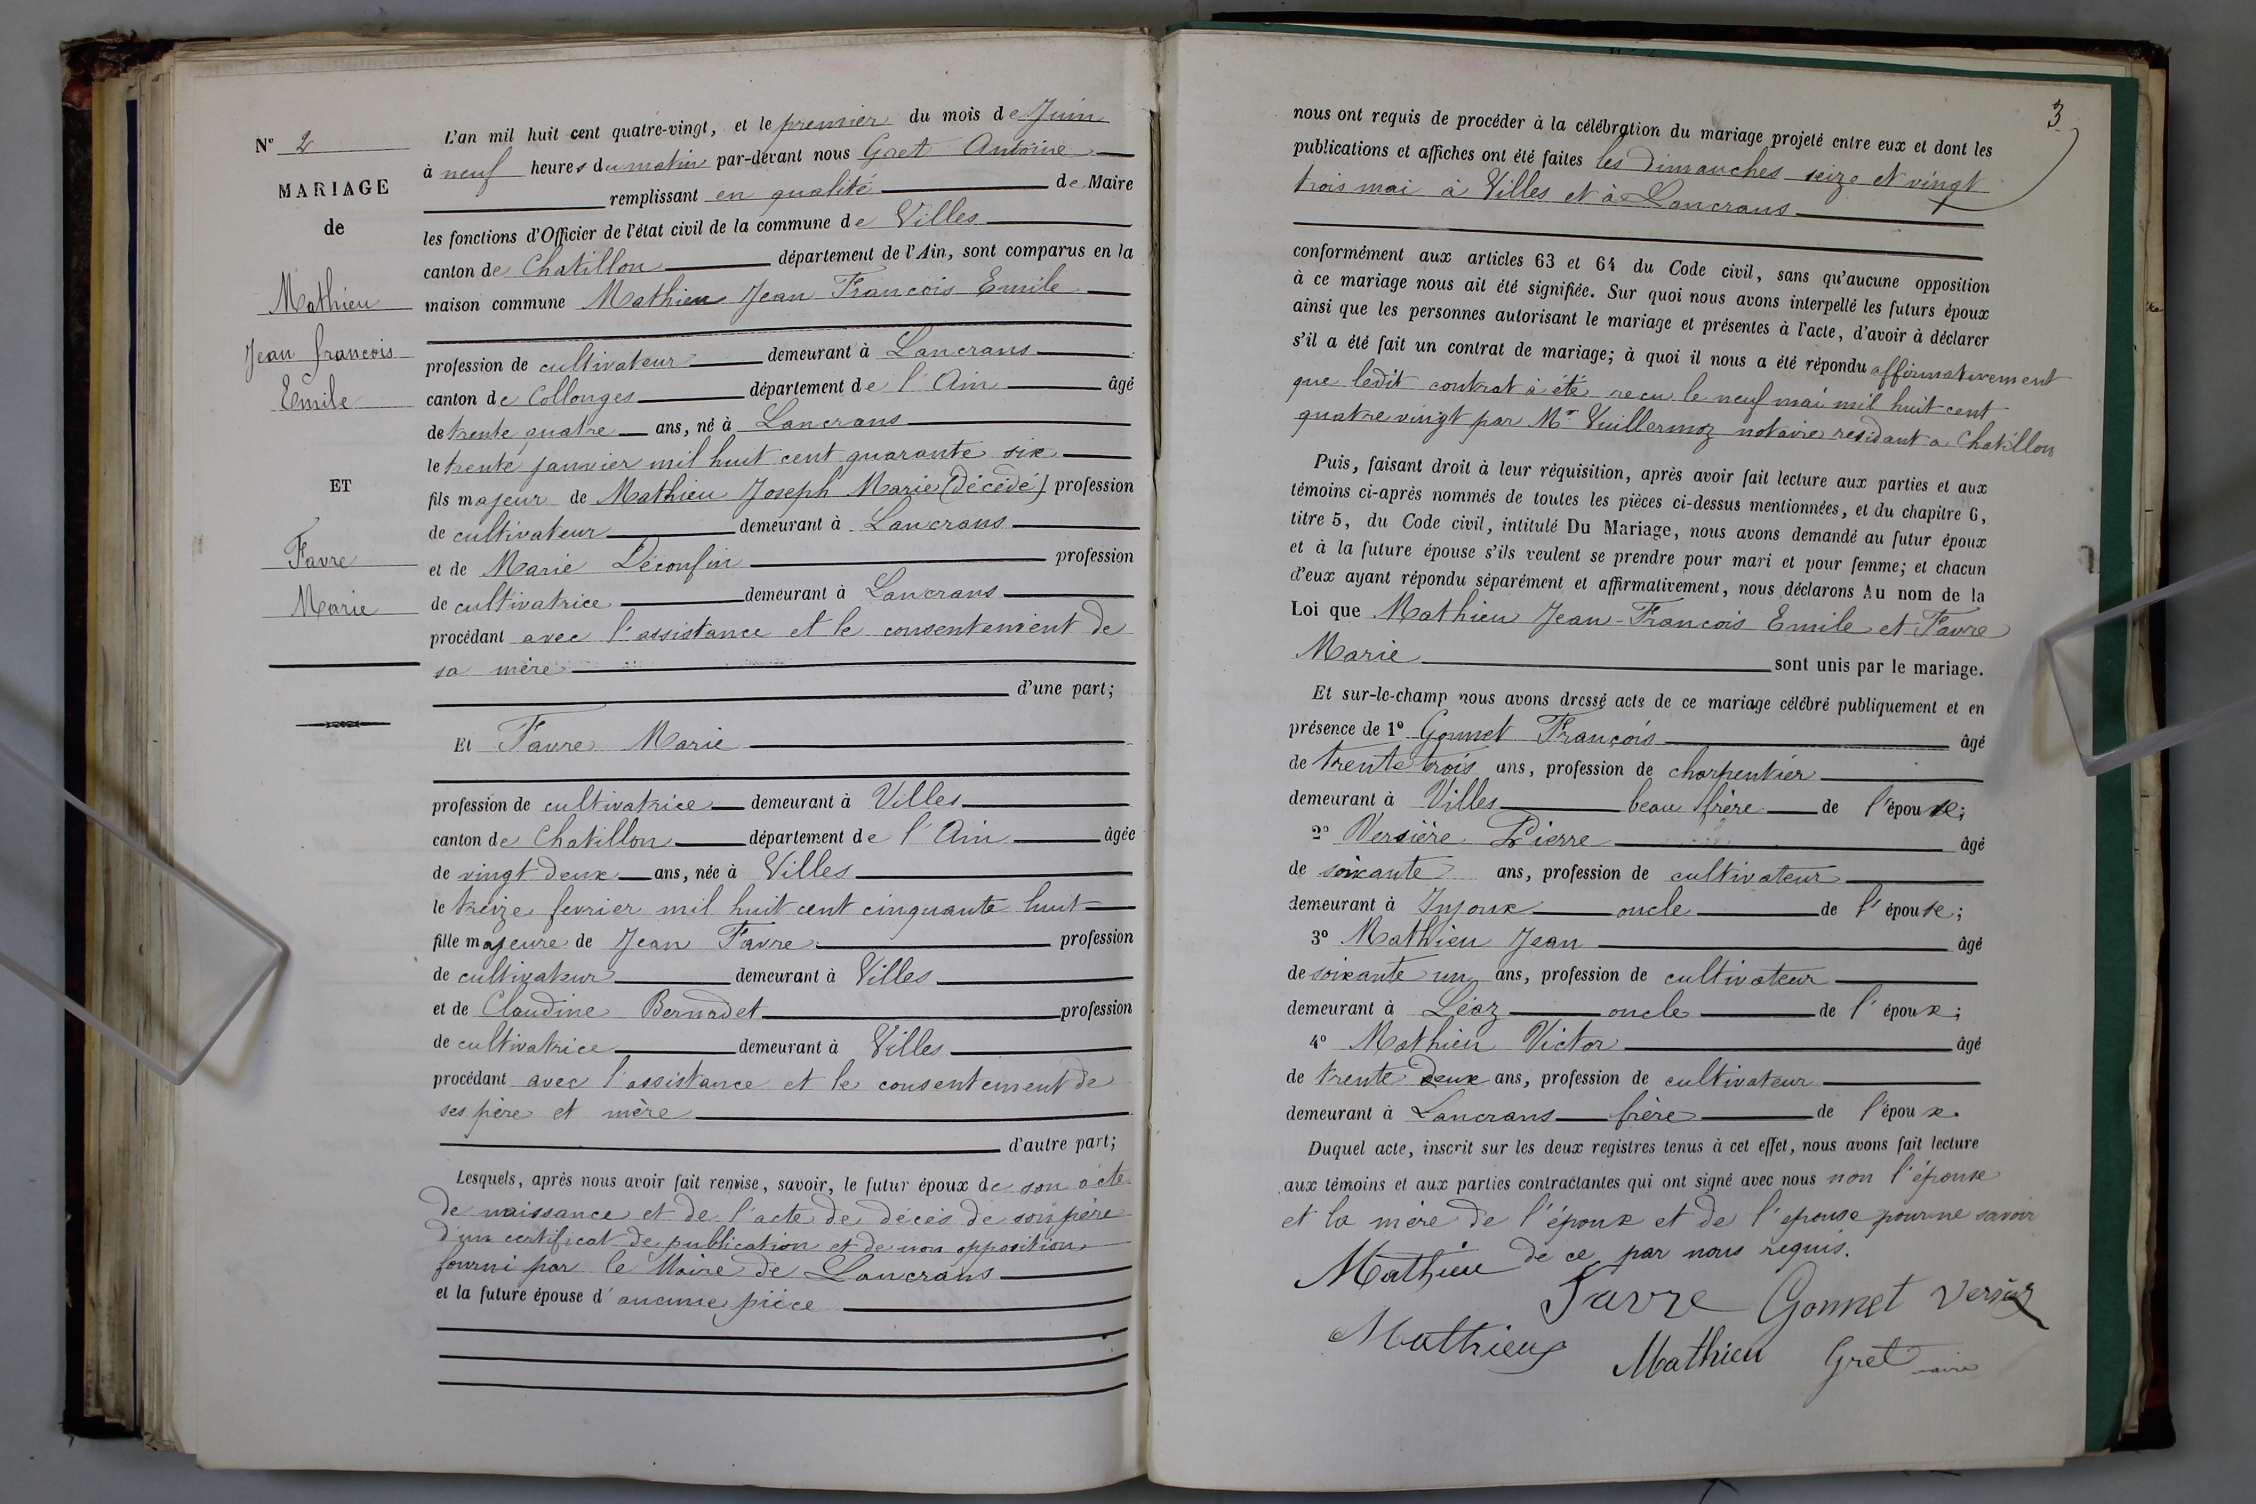 N° 2
MARIAGE
de
Mathieu
Jean françois
Emile
ET
Favre
Marie
L'an mil huit cent quatre-vingt, et le premier du mois de Juin
à neuf heures du matin par-devant nous Gret Antoine
remplissant en qualité de Maire
les fonctions d'Officier de l'état civil de la commune de Villes
canton de Chatillon département de l'Ain, sont comparus en la
maison commune Mathieu Jean François Emile
profession de cultivateur demeurant à Lancrans
canton de Collonges département de l'Ain âgé
de trente quatre ans, né à Lancrans
le trente janvier mil huit cent quarante six
fils majeur de Mathieu Joseph Marie (décédé) profession
de cultivateur demeurant à Lancrans
et de Marie Découfin profession
de cultivatrice demeurant à Lancrans
procédant avec l'assistance et le consentement de
sa mère
d'une part;
Et Favre Marie
profession de cultivatrice demeurant à Villes
canton de Chatillon département de l'Ain âgée
de vingt deux ans, née à Villes
le treize fevrier mil huit cent cinquante huit
fille majeure de Jean Favre profession
de cultivateur demeurant à Villes
et de Claudine Bernadet profession
de cultivatrice demeurant à Villes
procédant avec l'assistance et le consentement de
ses père et mère
d'autre part;
Lesquels, après nous avoir fait remise, savoir, le futur époux de son acte
de naissance et de l'acte de décès de son père
d'un certificat de publication et de non opposition
fourni par le Maire de Lancrans
et la future épouse d'aucune pièce
3
nous ont requis de procéder à la célébration du mariage projeté entre eux et dont les
publications et affiches ont été faites les dimanches seize et vingt
trois mai à Villes et à Lancrans
conformément aux articles 63 et 64 du Code civil, sans qu'aucune opposition
à ce mariage nous ait été signifiée. Sur quoi nous avons interpellé les futurs époux
ainsi que les personnes autorisant le mariage et présentes à l'acte, d'avoir à déclarer
s'il a été fait un contrat de mariage; à quoi il nous a été répondu affirmativement
que ledit contrat à été recu le neuf mai mil huit cent
quatre vingt par Mr Vuillermoz notaire residant a Chatillon
Puis, faisant droit à leur réquisition, après avoir fait lecture aux parties et aux
témoins ci-après nommés de toutes les pièces ci-dessus mentionnées, et du chapitre 6,
titre 5, du Code civil, intitulé Du Mariage, nous avons demandé au futur époux
et à la future épouse s'ils veulent se prendre pour mari et pour femme; et chacun
d'eux ayant répondu séparément et affirmativement, nous déclarons Au nom de la
Loi que Mathieu Jean-François Emile et Favre
Marie sont unis par le mariage.
Et sur-le-champ nous avons dressé acte de ce mariage célébré publiquement et en
présence de 1° Gonnet François âgé
de trente trois ans, profession de charpentier
demeurant à Villes beau frère de l'épouse;
2° Versière Pierre âgé
de soixante ans, profession de cultivateur
demeurant à Injoux oncle de l'épouse;
3° Mathieu Jean âgé
de soixante un ans, profession de cultivateur
demeurant à Léaz oncle de l'époux;
4° Mathieu Victor âgé
de trente deux ans, profession de cultivateur
demeurant à Lancrans frère de l'époux.
Duquel acte, inscrit sur les deux registres tenus à cet effet, nous avons fait lecture
aux témoins et aux parties contractantes qui ont signé avec nous non l'épouse
et la mère de l'époux et de l'epouse pour ne savoir
de ce par nous requis.
Mathieu
Favre Gonnet
Mathieu
Mathieu Gret maire